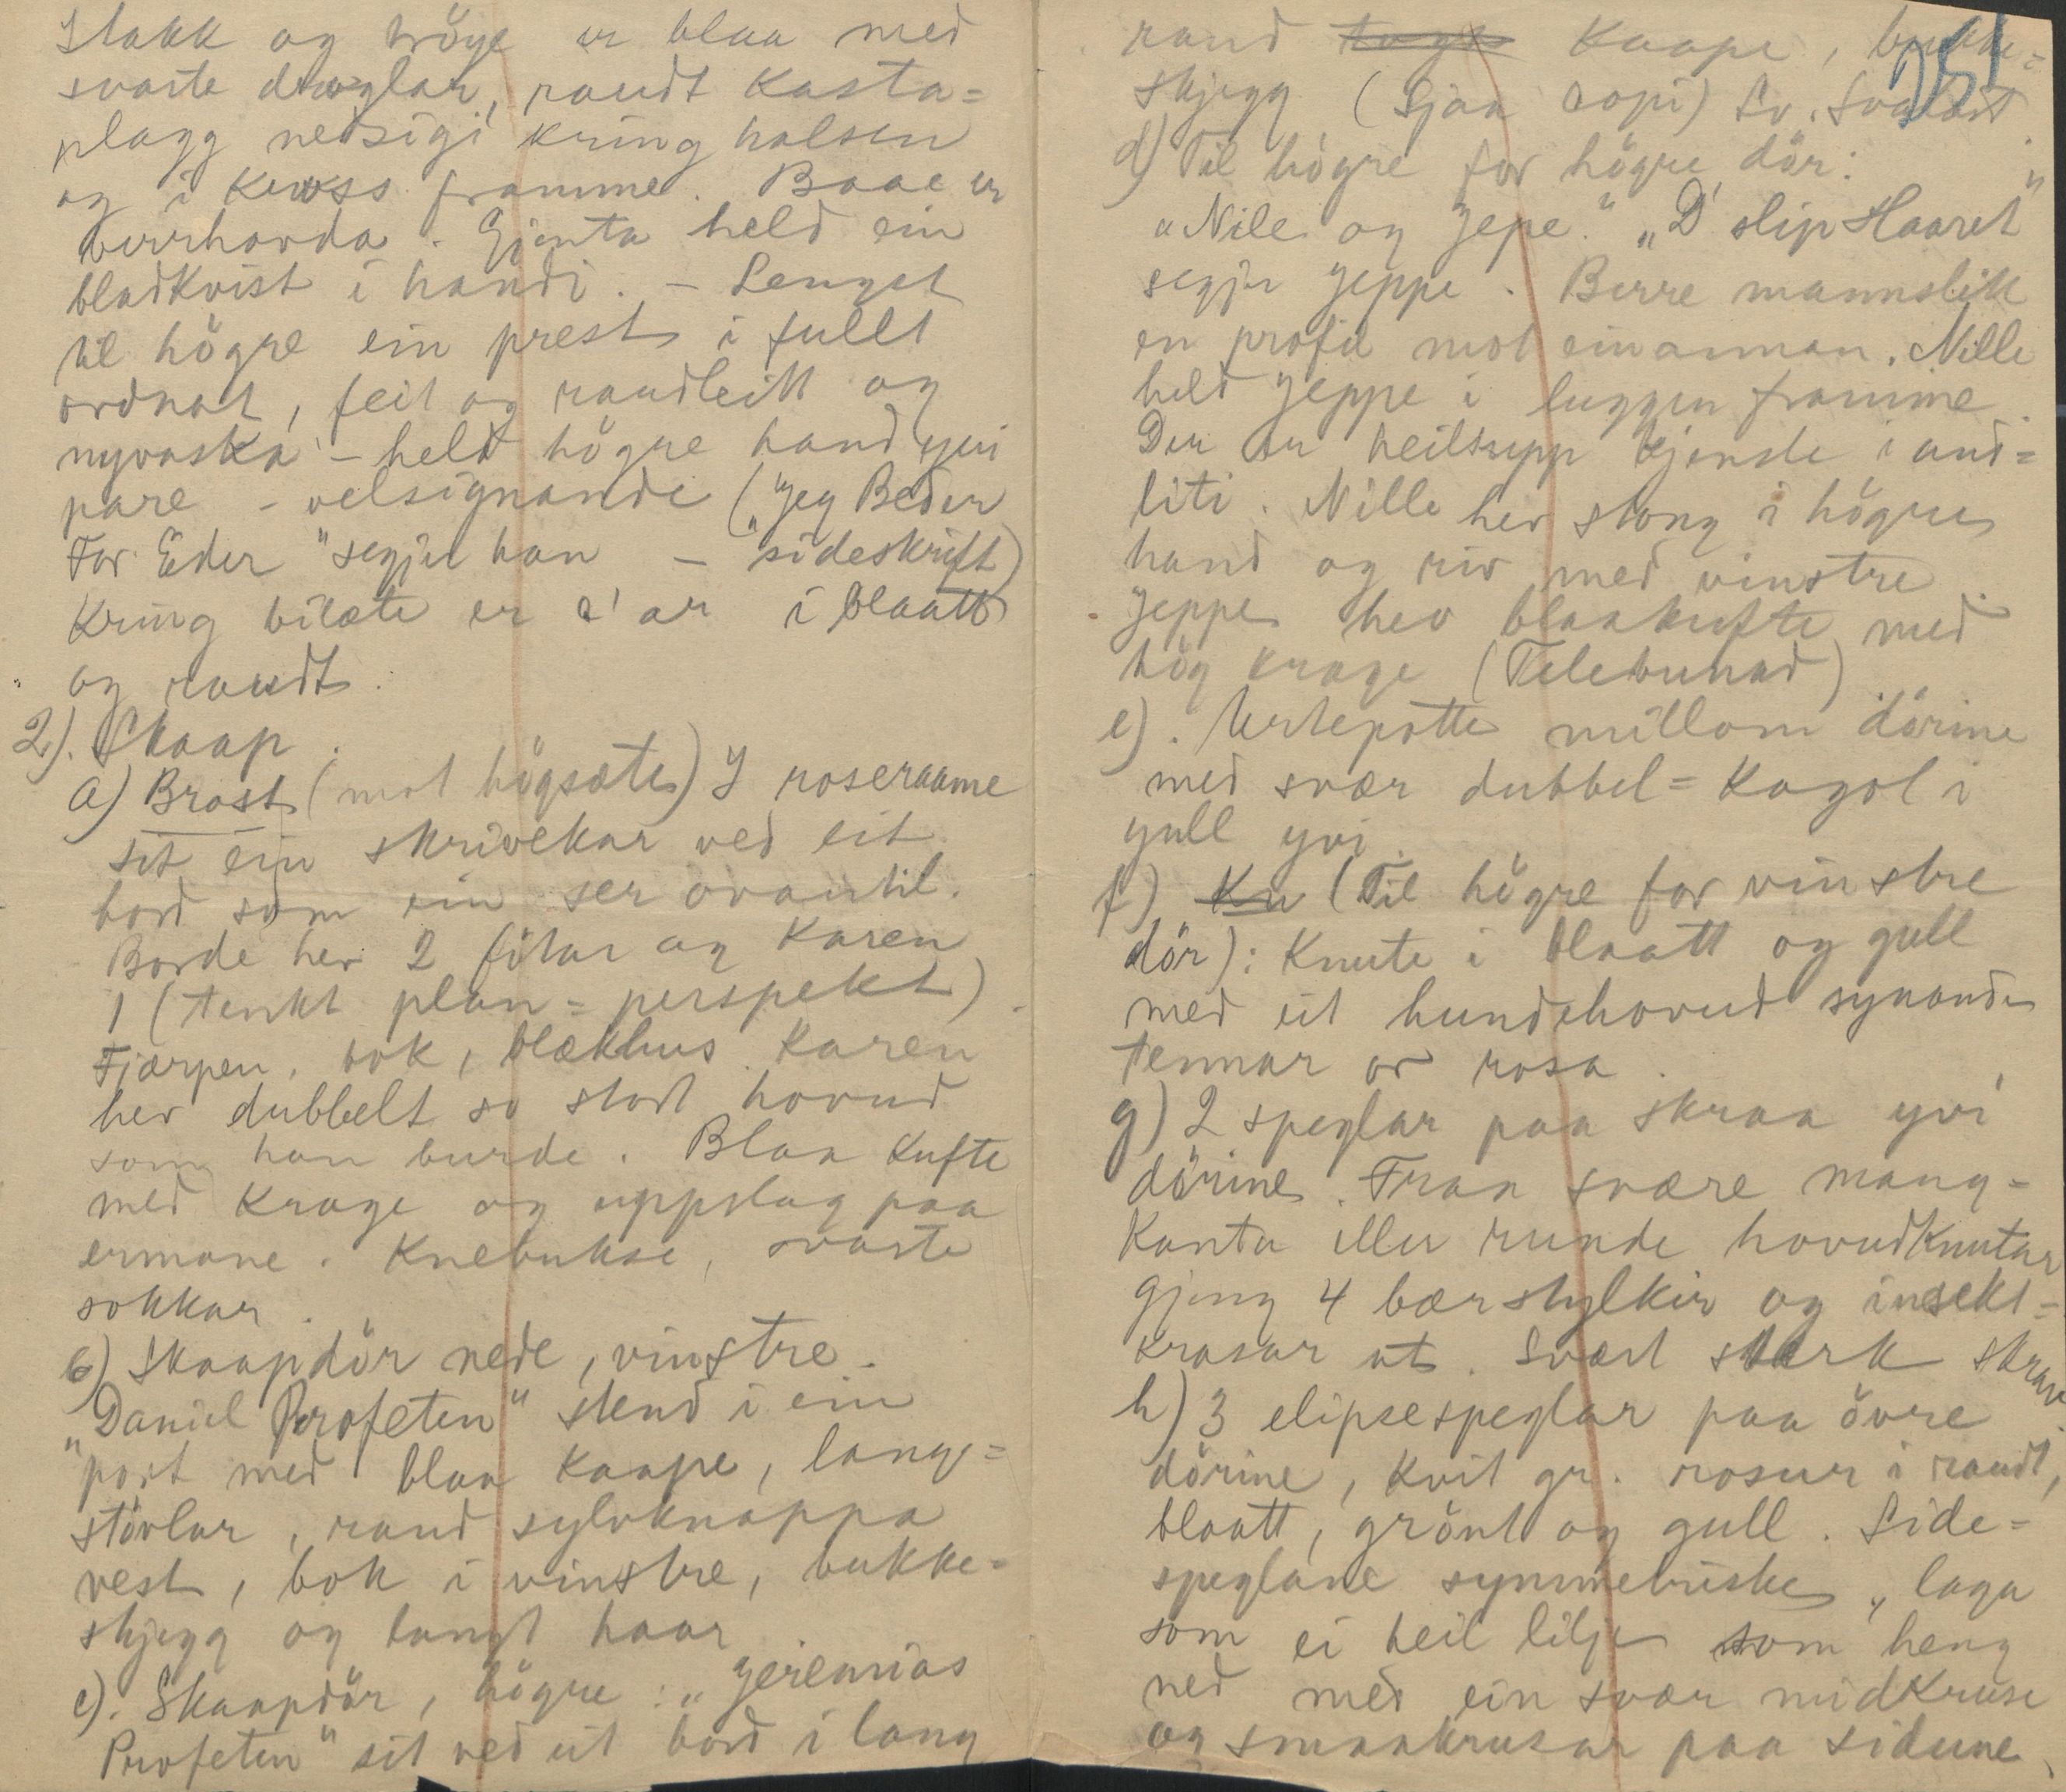 Stakk og tröye er blaa med
svarte dreglar, raudt kasta=
plagg nedsigi kring halsen
og i kross framme. Baae er
berrhovda. Gjenta held ein
bladkvist i handi. – Lengst
til högre ein prest i fullt
ordnat, feit og raudleitt og
nyvaska – held högre hand yvi
pare – velsignande („Jeg Beder
For Eder" segjer han – sideskrift)
Kring bilæte er a'ar i blaatt
og raudt.
2). Skaap.
a) Brost (mot högsæte) I roseraame
sit ein skrivekar ved eit
bord som ein ser ovantil.
Borde hev 2 fötar og karen
1 (tenkt plan=perspekt).
Fjærpen, bok, blækhus. Karen
hev dubbelt so stort hovud
som han burde. Blaa kufte
med krage og uppslag paa
ermane. Knebukse, svarte
sokkar.
b) Skaapdör nede, vinstre.
„Daniel Profeten" stend i ein
port med blaa kaape, lang=
stövlar, raud sylvknappa
vest, bok i vinstre, bukke=
skjegg og langt haar.
c). Skaapdör, högre: „Jeremias
Profeten" sit ved eit bord i lang
251
raud kaape, bukke=
skjegg (Sjaa copi) Sv.
d) Til högre for högre dör:
„Nile og Jepe." „D' slip Haaret"
segjer Jeppe. Berre mannsbilk
en profil mot einannan. Nille
held Jeppe i luggen framme.
Der er heilskepp kjensle i and=
liti. Nille hev stong i högre
hand og riv med vinstre.
Jeppe hev blaakufte med
hög krage (Telebunad)
e). Urtepotte millom dörine
med svær dubbel=kagol i
gull yvi.
f) Kn (Til högre for vinstre
dör): Knute i blaatt og gull
med eit hundehovud synande
tennar or rosa.
g) 2 speglar paa skraa yvi
dörine. Fraa svære mang=
kanta eller runde hovudknutar
gjeng 4 bærstylkir og insekt=
krasar ut. Svært sterk skrav.
h) 3 elipsespeglar paa övre
dörine, kvit gr. rosur i raudt,
blaatt, grönt og gull. Side=
speglane symmetriske, laga
som ei heil lilje som heng
ned med ein svær midkruse
og smaakrusar paa sidune.